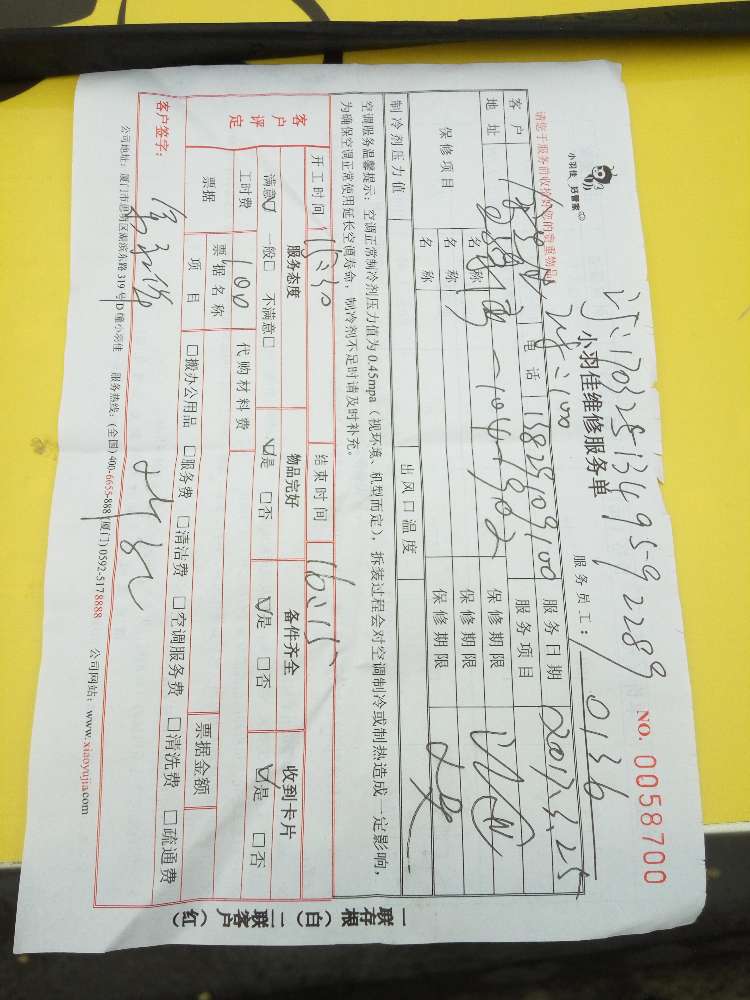 小羽佳 好管家
请您于服务前收捡好您的贵重物品
小羽佳维修服务单
NO. 0058700
服务员工： 0136
客户 电话 13829109100 服务日期 2017.3.25
地址 服务项目
保修项目 名称 保修期限
名称 保修期限
名称 保修期限
制冷剂压力值 出风口温度
空调服务温馨提示：空调正常制冷剂压力值为0.45mpa（视环境、机型而定），拆装过程会对空调制冷或制热造成一定影响，
为确保空调正常使用延长空调寿命，制冷剂不足时请及时补充。
开工时间 结束时间 16:15
客户评定 服务态度 物品完好 备件齐全 收到卡片
满意☑ 一般□ 不满意□ ☑是 □否 ☑是 □否 ☑是 □否
工时费 100 代购材料费
票据 票据名称 票据金额
项目 □搬办公用品 □服务费 □清洁费 □空调服务费 □清洗费 □疏通费
客户签字：
公司地址：厦门市思明区湖滨东路319号D幢小羽佳 服务热线：(全国)400-6655-888(厦门)0592-5178888 公司网站：www.xiaoyujia.com
一联存根（白）二联客户（红）